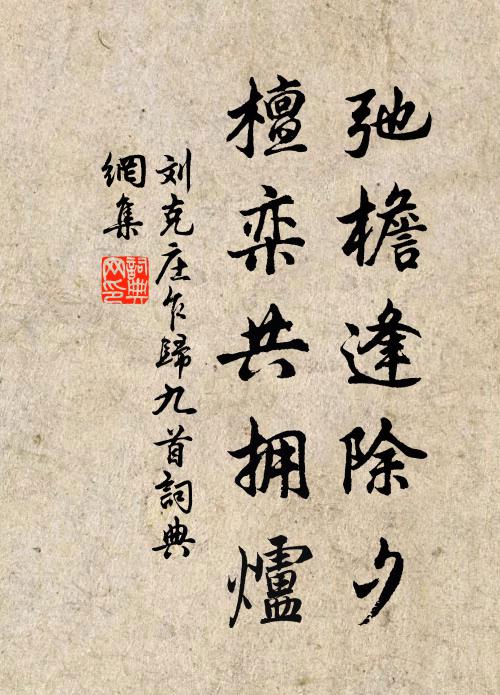 弛檐逢除夕
檀栾共拥爐
刘克庄乍歸九首詞典
網集
詞典网印